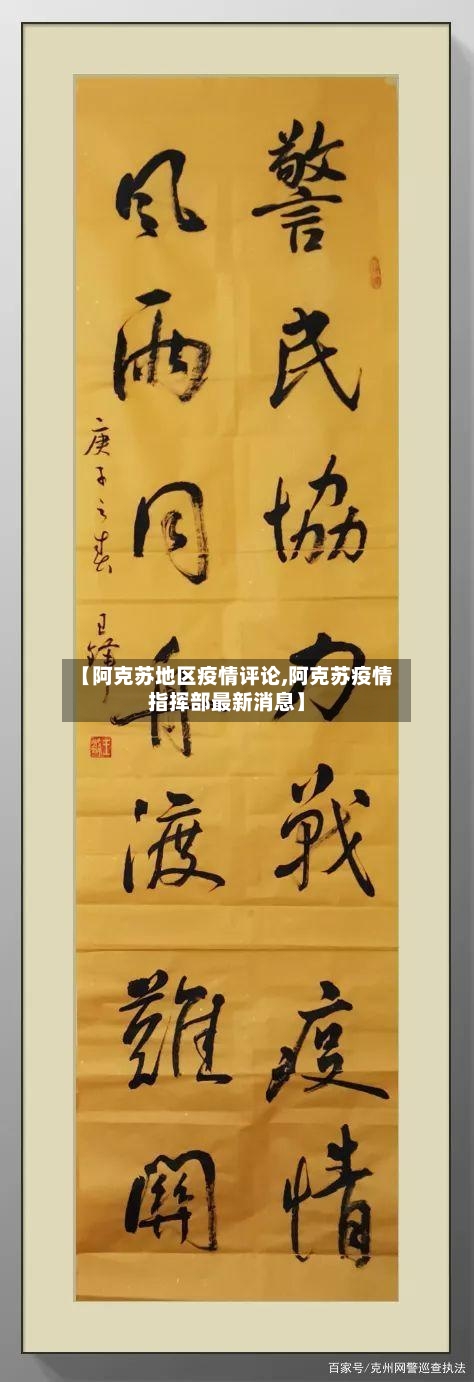 警民協力戰疫情
風雨同舟渡難關
庚子之春
【阿克苏地区疫情评论,阿克苏疫情
指挥部最新消息】
百家号/克州网警巡查执法